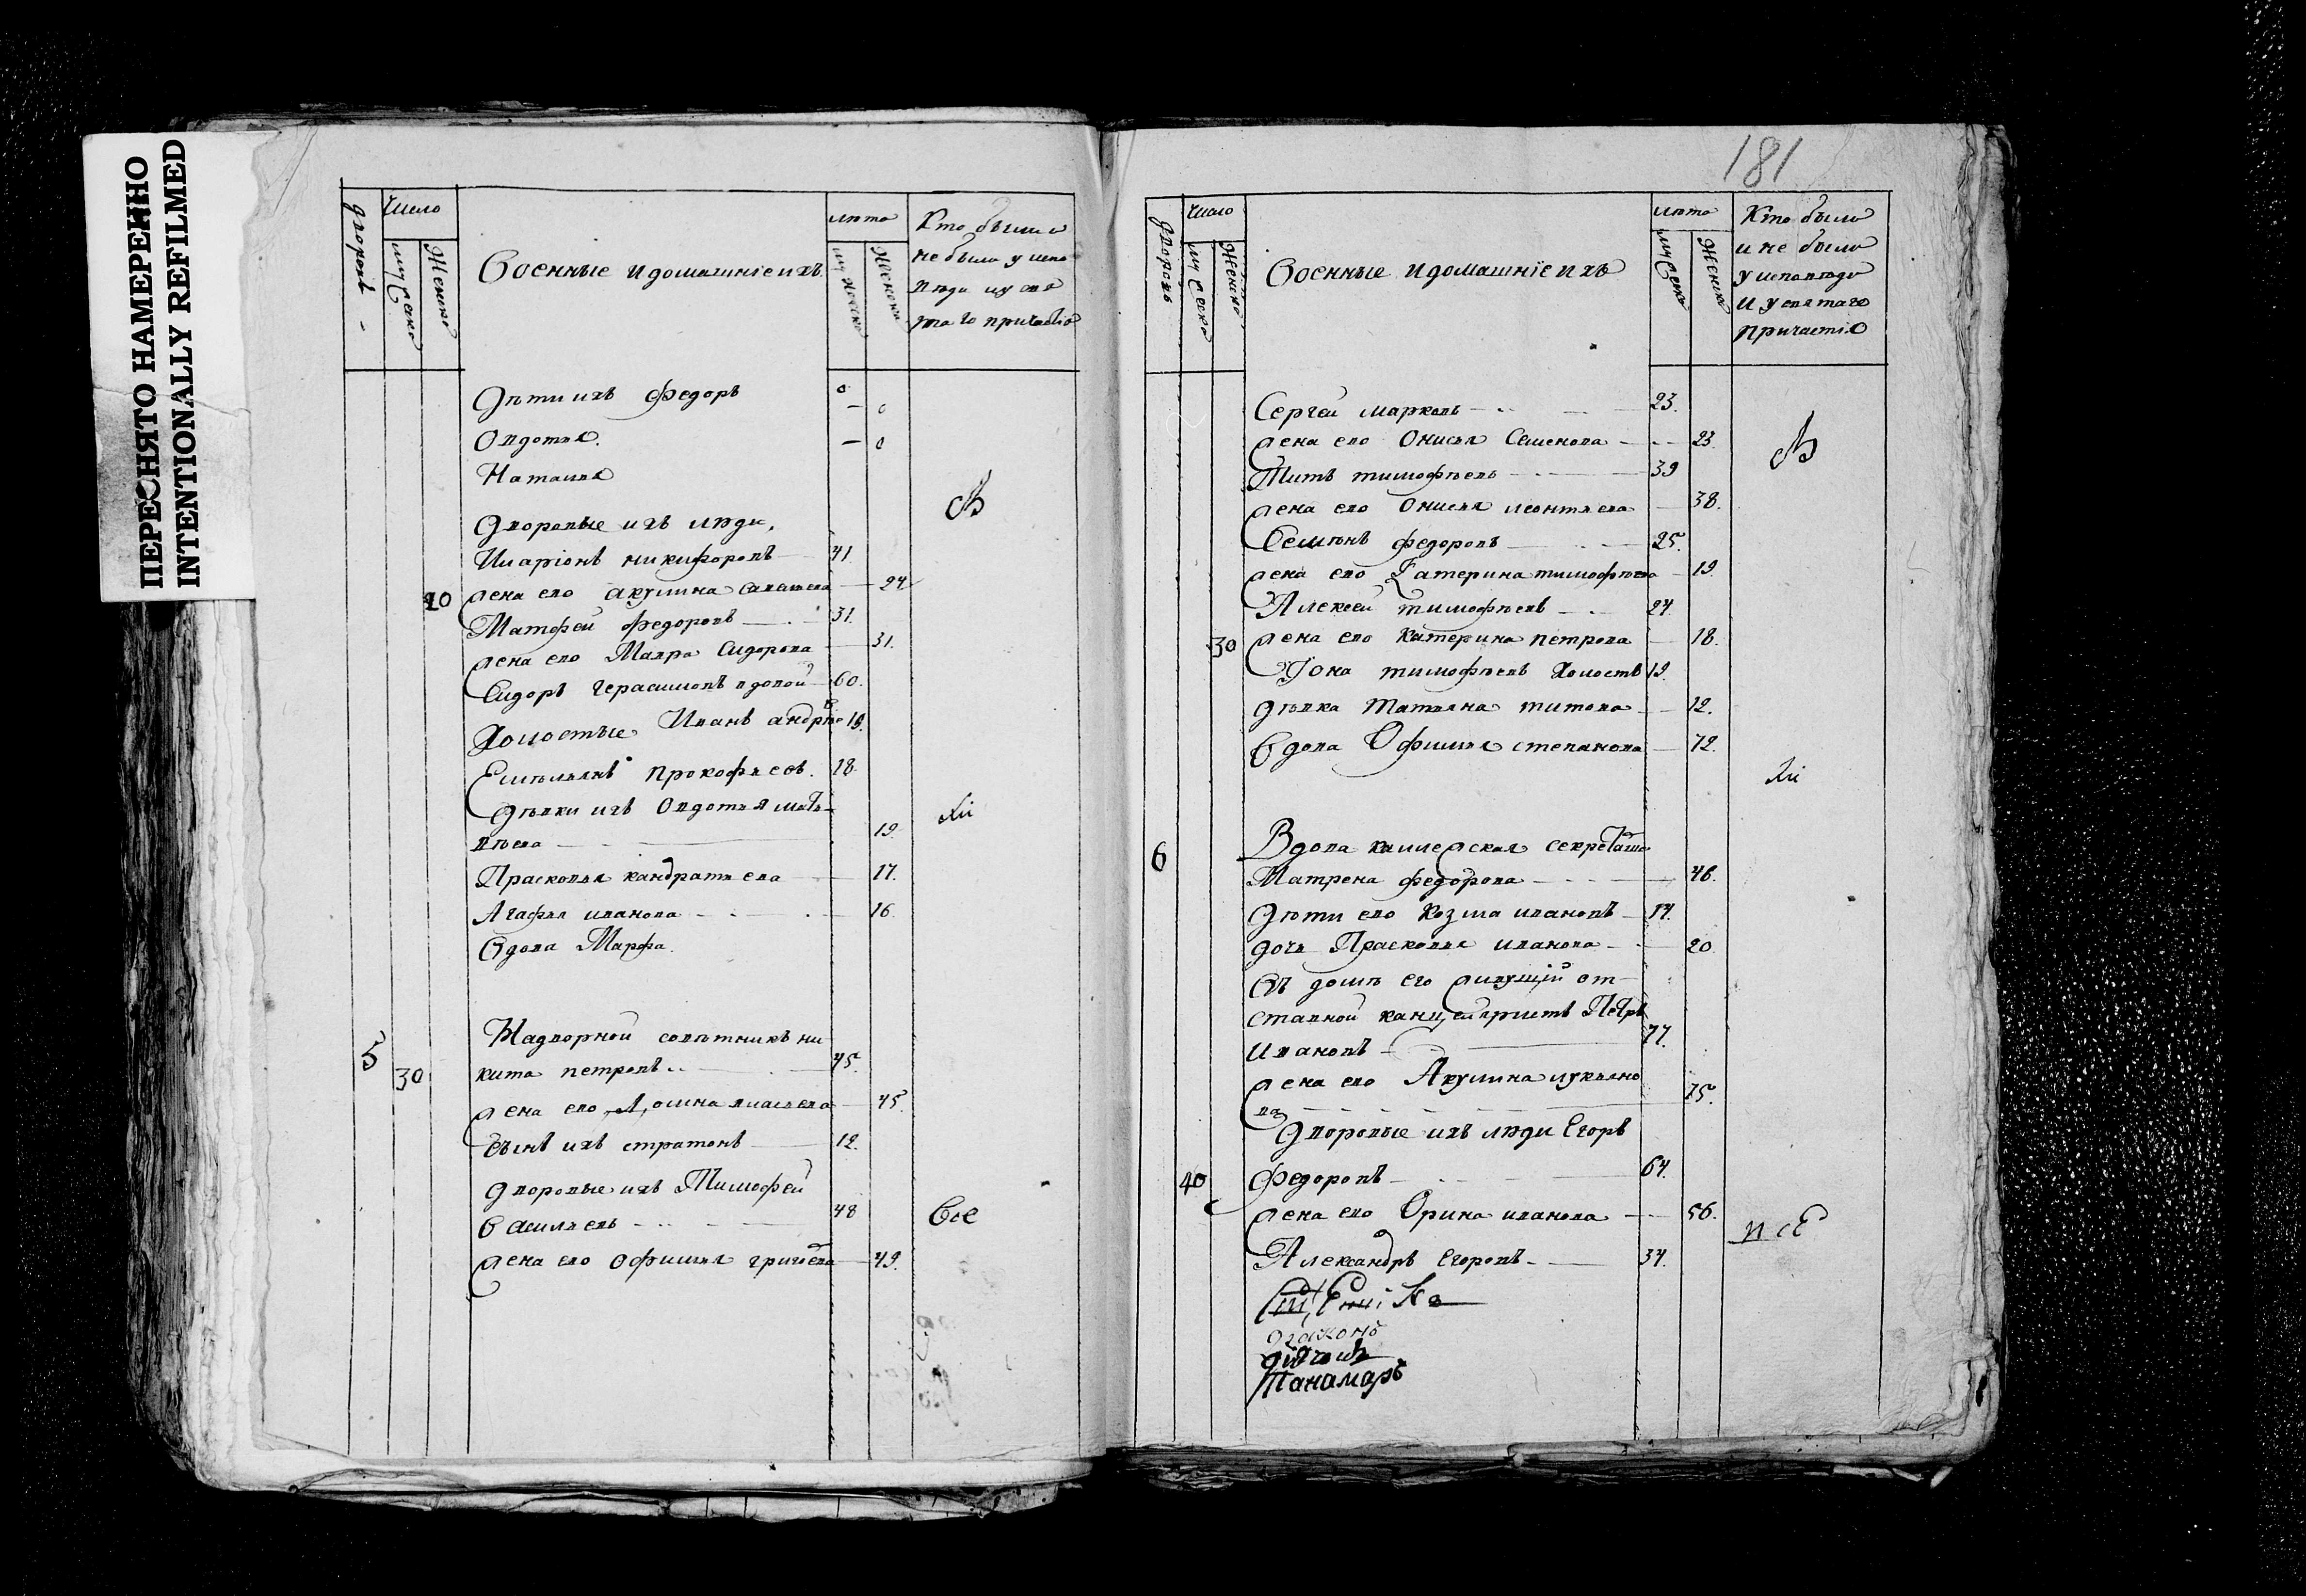 ПЕРЕСНЯТО НАМЕРЕННО
INTENTIONALLY REFILMED
дворовъ
Число
мужеско
Женско
Военные и домашніе ихъ
лѣта
мужеско
Женско
Кто были и
не были у испо
вѣди и у свя
таго причастія
Дѣти ихъ Федоръ 0
Овдотья. 0
Наталья 0
Дворовые ихъ люди,
Иларіонъ никифоровъ 41
20 жена ево акулина савельева 24
Матфей федоровъ 31.
жена ево Мавра Сидорова 31.
Сидоръ герасимовъ вдовой 60.
Холостые Иванъ андрѣевъ 19.
Емельянъ прокофьевъ. 18.
Дѣвки ихъ Овдотья мать-
вѣева 19.
Прасковья кандратьева 17.
Агафья иванова 16.
Вдова Марфа.
5 30 Надворной совѣтникъ ни
кита петровъ 45.
жена ево 45.
Сынъ ихъ стратонъ 12.
дворовые ихъ Тимофей
Васильевъ 48
жена ево Офимья григорьева 49.
Все
181
дворовъ
Число
мужеско
Женско
Военные и домашніе ихъ
лѣта
мужеско
Женско
Кто были
и не были
у исповѣди
и у святаго
причастія
Сергей марковъ 23.
жена ево Онисья Семенова 23
Титъ тимофѣевъ 39
жена ево Онисья леонтьева 38.
Семенъ федоровъ 25.
жена ево Катерина тимофѣева 19
Алексей тимофѣевъ 24.
30 жена ево катерина петрова 18.
Іона тимофѣевъ холостъ 19.
Дѣвка татьяна титова 12.
Вдова Офимья степанова 72.
6 Вдова колежская секретарша
Матрена федорова 46.
Дѣти ево Козма ивановъ 14.
дочь Прасковья иванова 20
Въ домѣ его живущій от-
ставной канцеляристъ Петръ
Ивановъ 77.
жена ево Акулина лукьяно
ва 75.
Дворовые ихъ люди Егоръ
40 Федоровъ 64.
жена ево Орина иванова 56.
все
Александръ Егоровъ 34.
Діаконъ
Дьячокъ
Панамарь